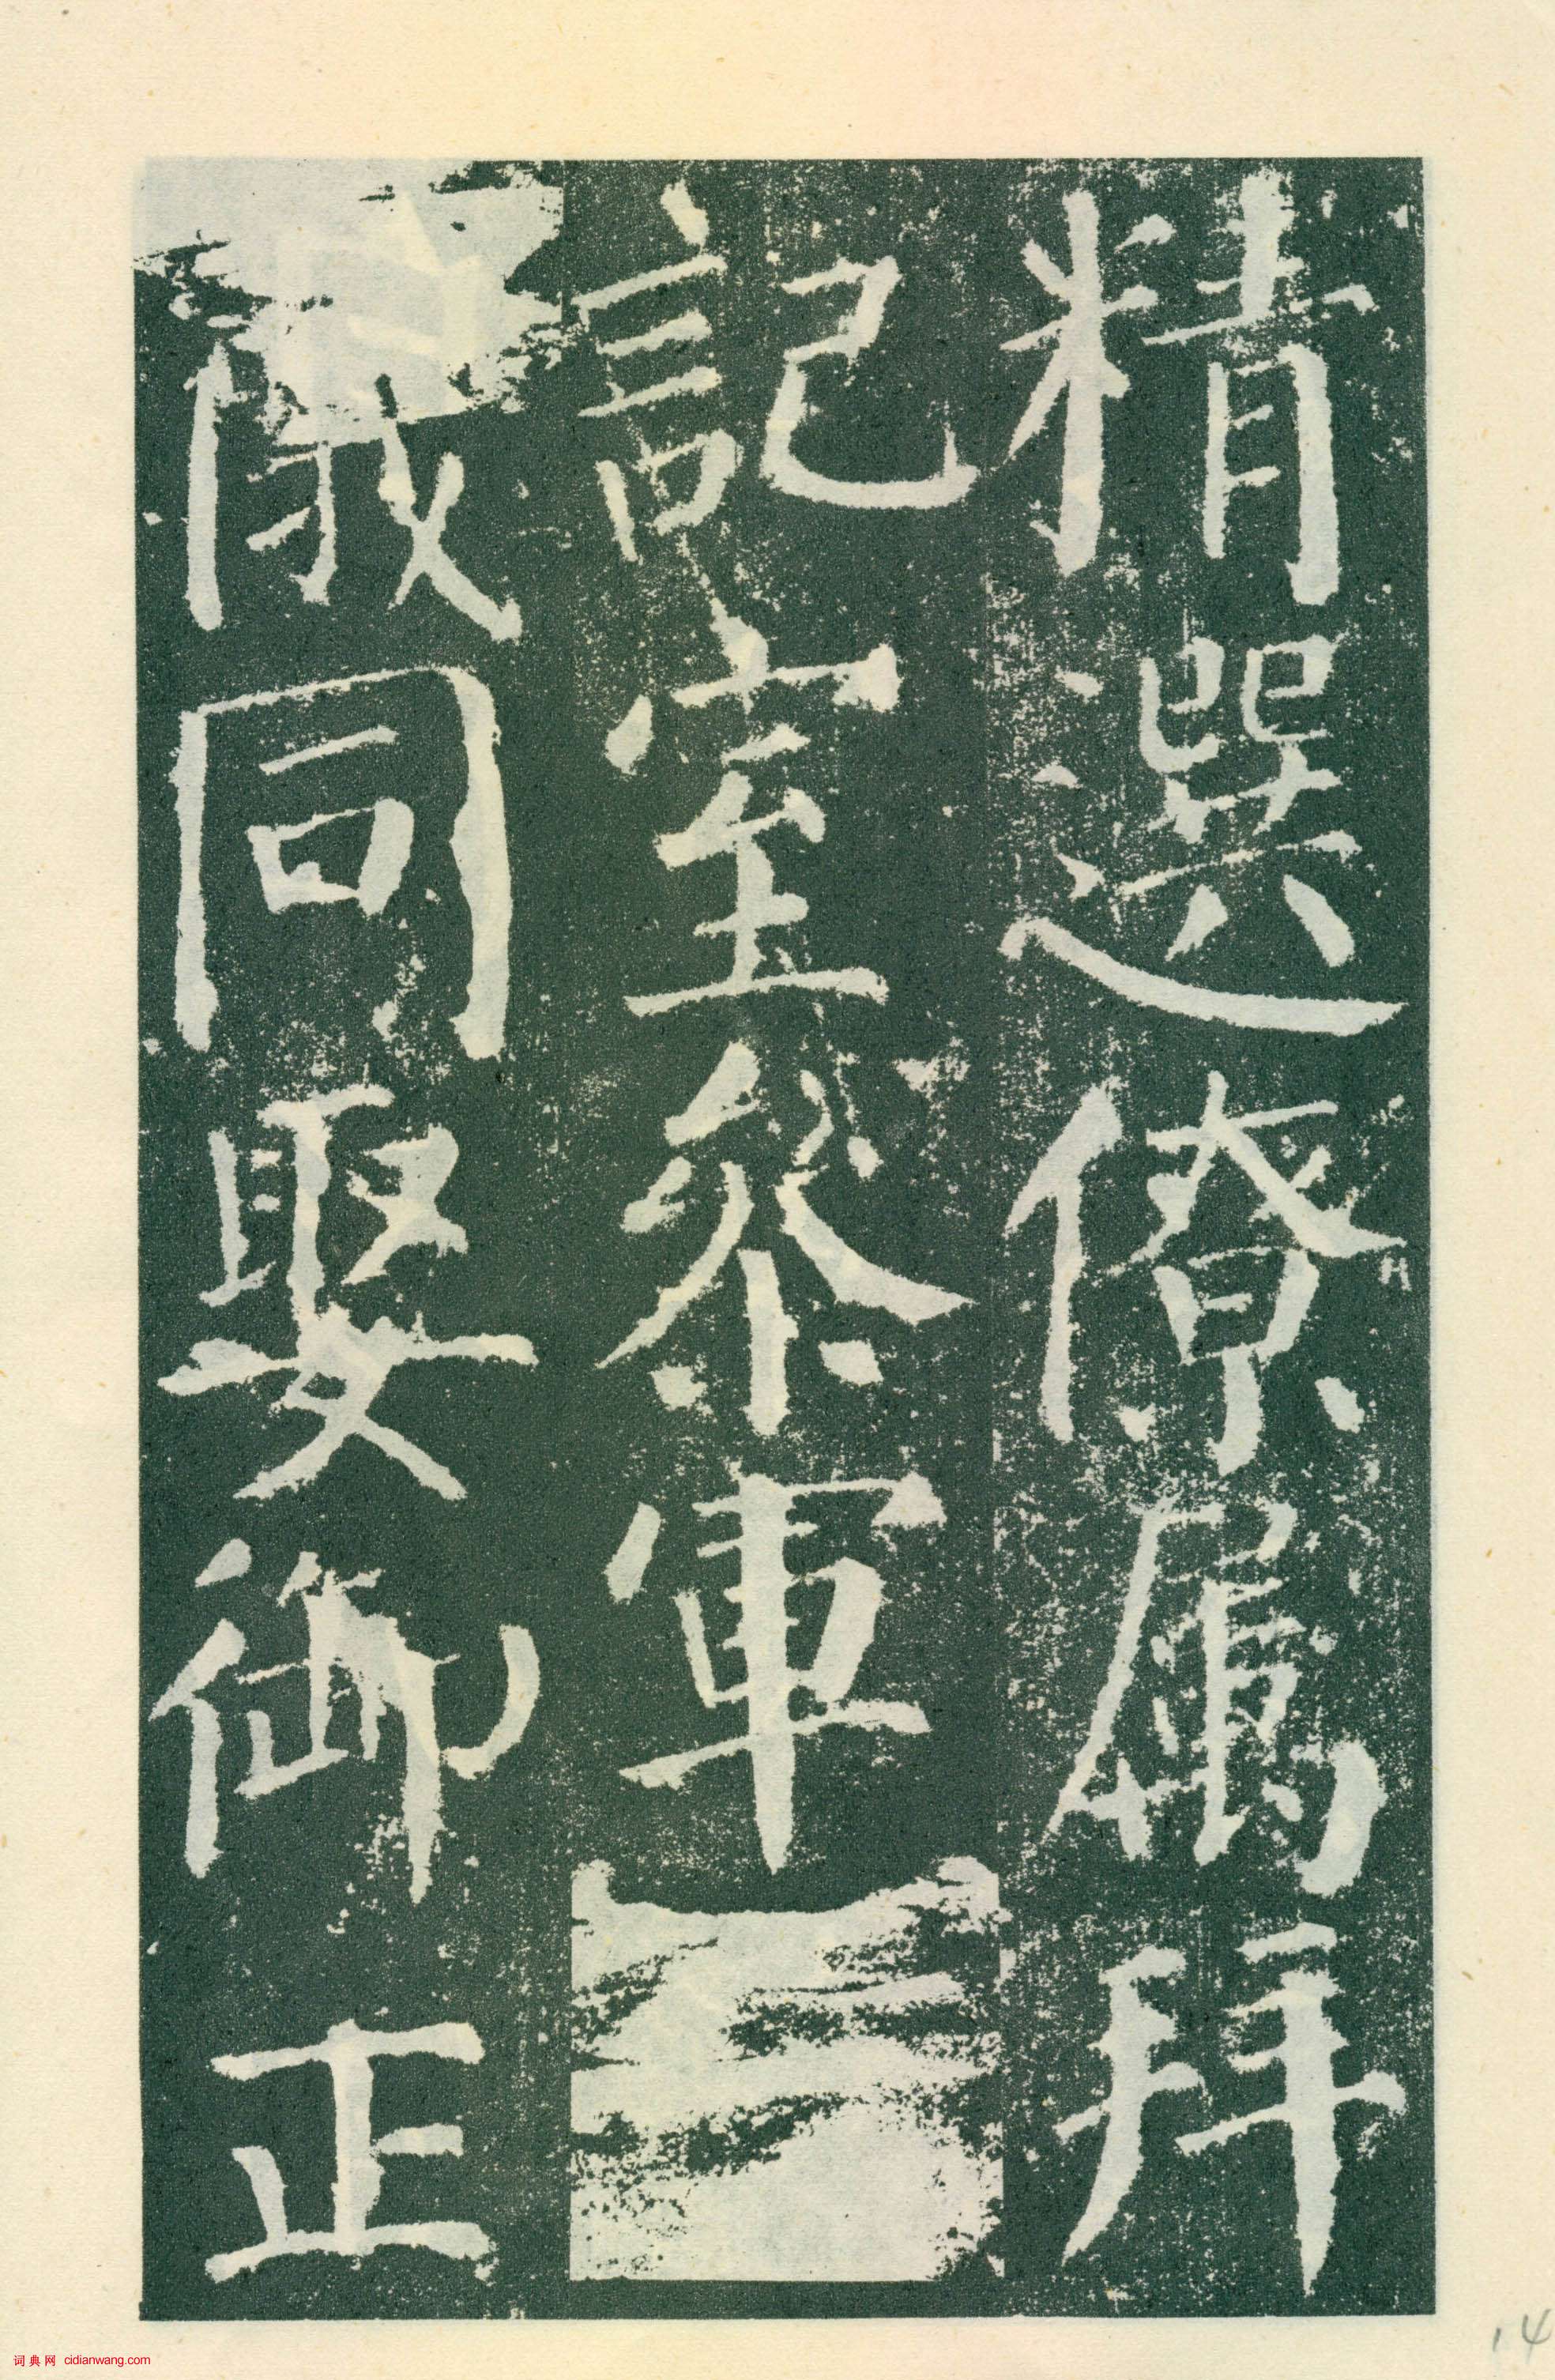 精選僚属拜
記室叅軍
儀同娶御正
14
词典网 cidianwang.com